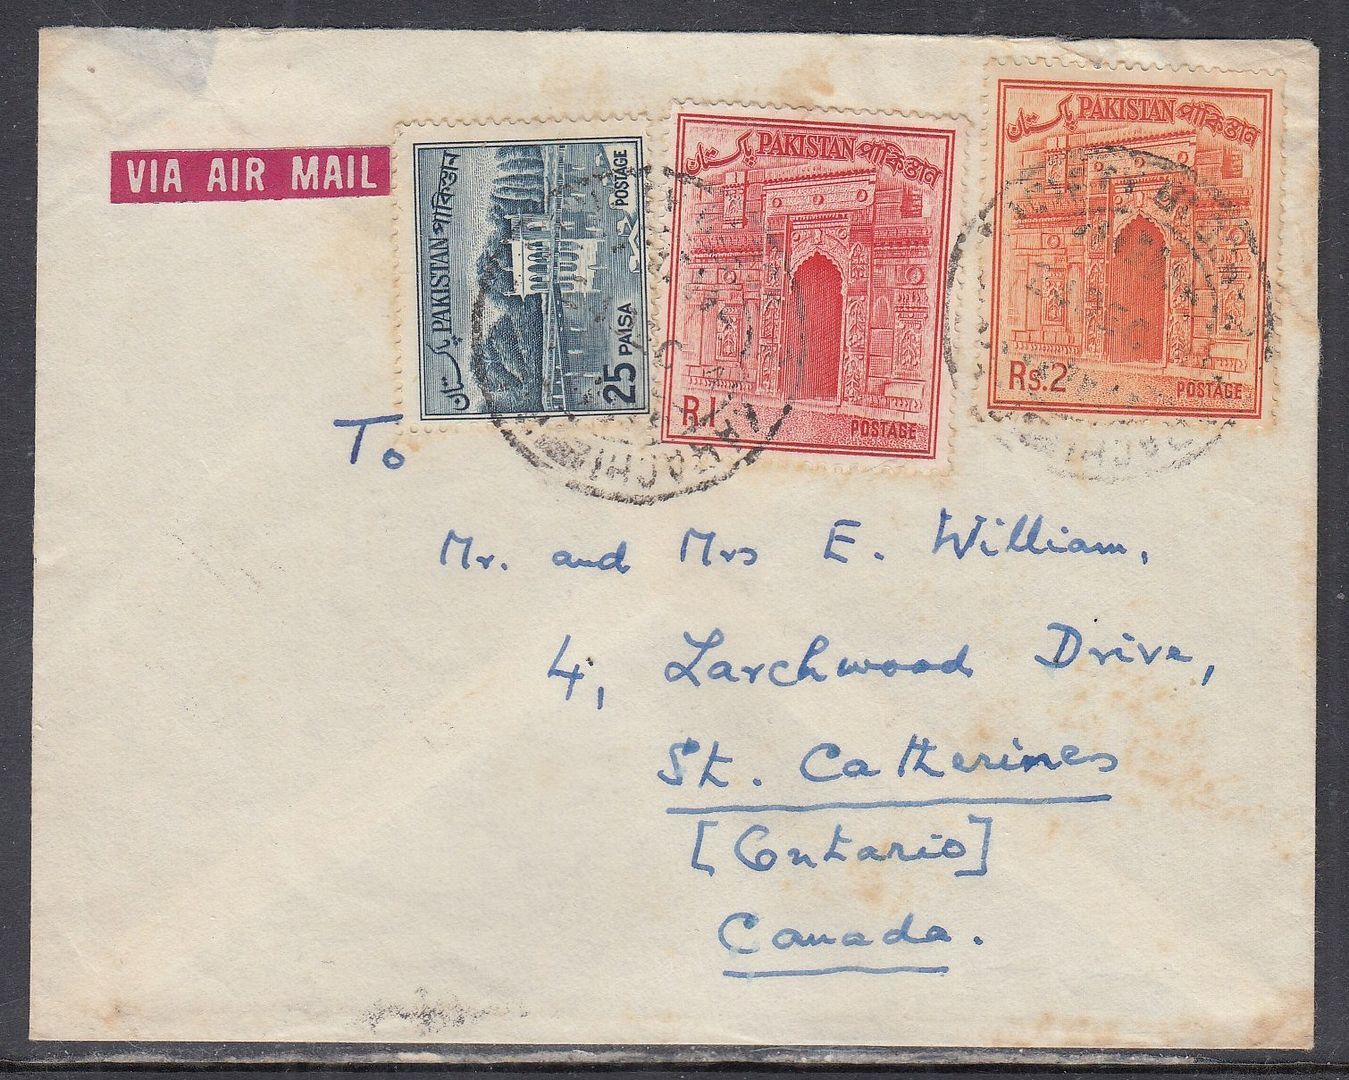 VIA AIR MAIL
پاکستان PAKISTAN পাকিস্তান
25 PAISA
POSTAGE
پاکستان PAKISTAN পাকিস্তান
R1
POSTAGE
پاکستان PAKISTAN পাকিস্তান
Rs.2
POSTAGE
KARACHI
To
Mr. and Mrs E. William,
4, Larchwood Drive,
St. Catherines
[Ontario]
Canada.